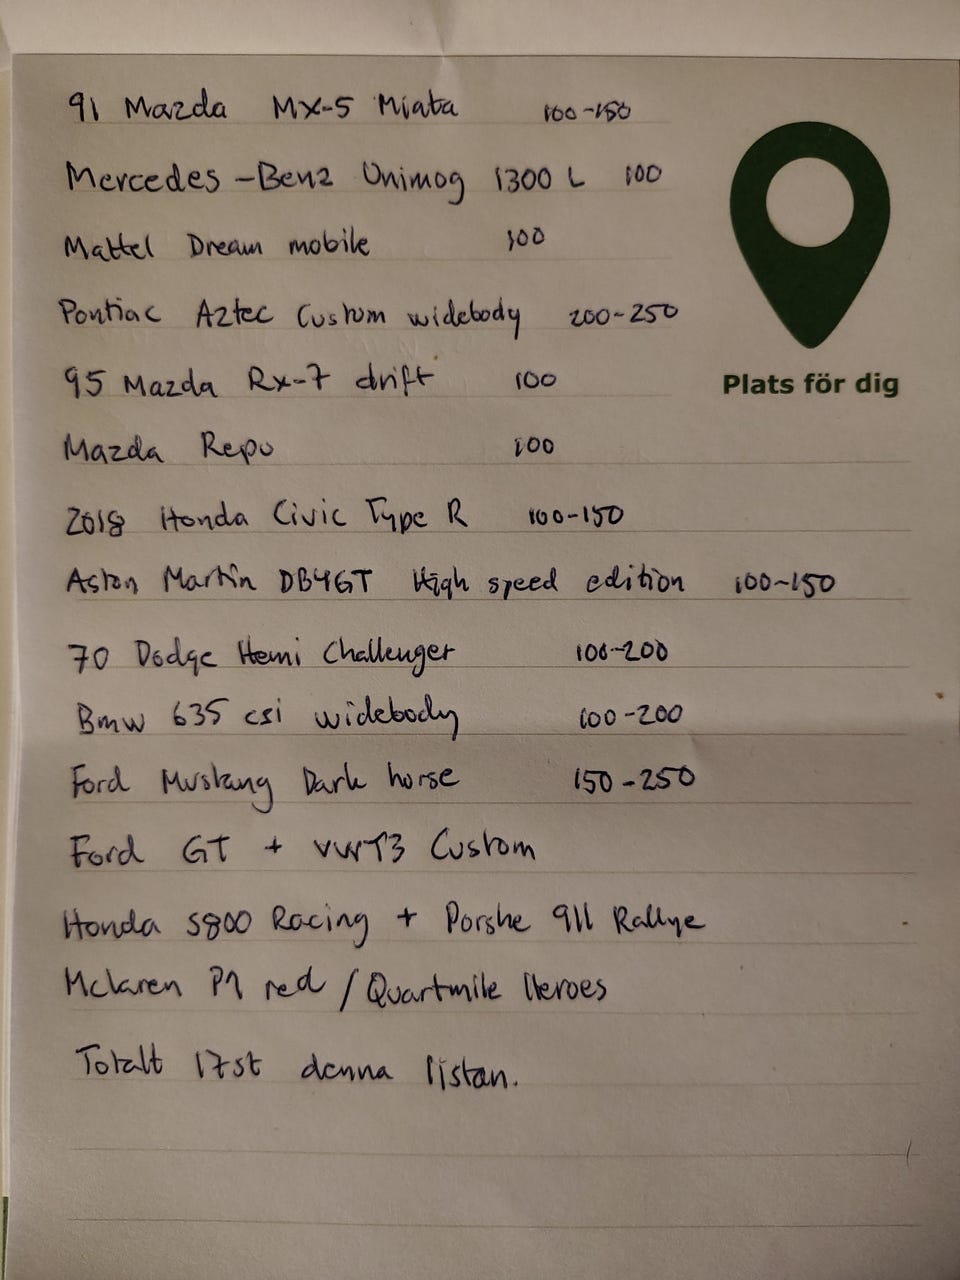 91 Mazda MX-5 Miata 100-150
Mercedes-Benz Unimog 1300 L 100
Mattel Dream mobile 100
Pontiac Aztec Custom widebody 200-250
95 Mazda Rx-7 drift 100
Plats för dig
Mazda Repu 100
2018 Honda Civic Type R 100-150
Aston Martin DB4GT High speed edition 100-150
70 Dodge Hemi Challenger 100-200
Bmw 635 csi widebody 100-200
Ford Mustang Dark horse 150-250
Ford GT + VWT3 Custom
Honda S800 Racing + Porshe 911 Rallye
Mclaren P1 red / Quartmile Heroes
Totalt 17st denna listan.